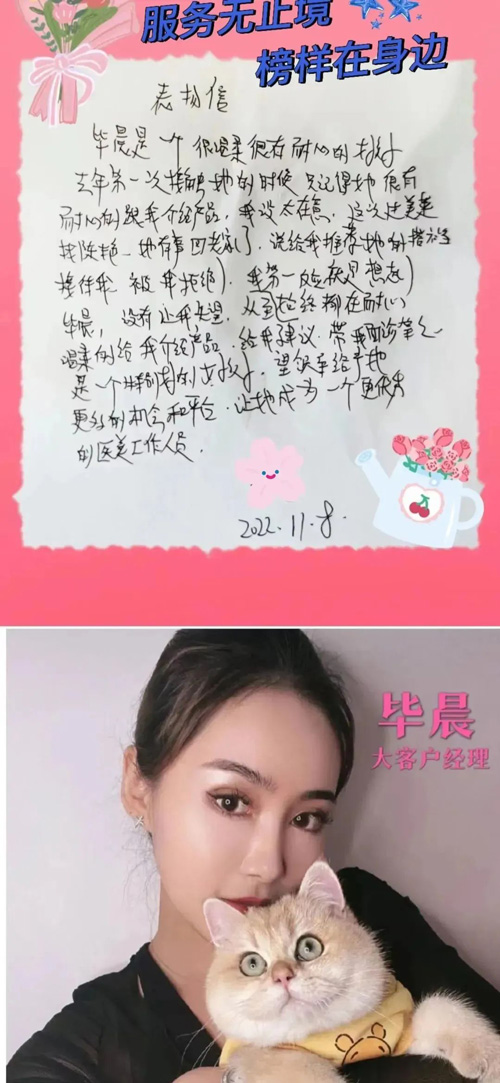 服务无止境
榜样在身边
表扬信
毕晨是一个很温柔很有耐心的女孩
去年第一次接触她的时候 只记得她很有
耐心的跟我介绍产品，我没太在意，这次过来是
她有事回老家了，说给我推荐她的
接待我 被我拒绝），我第一反应就是想起
毕晨，没有让我失望，从到最终都在耐心
温柔的给我介绍产品，给我建议，带我面诊等等
是一个特别好的女孩，望领导给予她
更多的机会和平台，让她成为一个更优秀
的医美工作人员．
2022.11.8.
毕晨
大客户经理